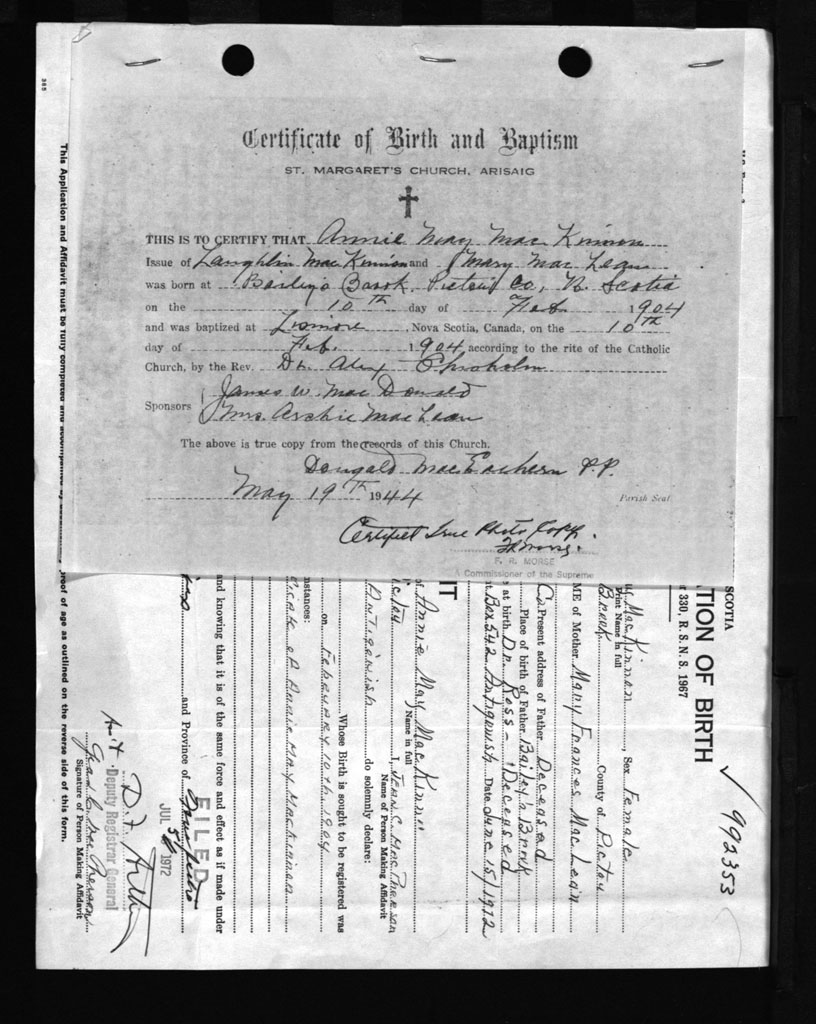 Certificate of Birth and Baptism
ST. MARGARET'S CHURCH, ARISAIG
THIS IS TO CERTIFY THAT Annie May Mac Kinnon
Issue of Laughlin Mac Kinnon and Mary Mac Lean
was born at Bailey's Brook, Pictou Co, N. Scotia
on the 10th day of Feb. 1904
and was baptized at Lismore, Nova Scotia, Canada, on the 10th
day of Feb. 1904, according to the rite of the Catholic
Church, by the Rev. Dr. Alex Chisholm
Sponsors James W. Mac Donald
Mrs. Archie Mac Lean
The above is true copy from the records of this Church.
Dougald MacEachern P.P.
May 19th 1944 Parish Seal
Certified True Photo Copy.
F. R. MORSE
A Commissioner of the Supreme
SCOTIA
TION OF BIRTH
330, R. S. N. S. 1967
992353
MacKinnon, Sex Female
Print Name in full
Brook County of Pictou
ME of Mother Mary Frances MacLean
Co. Present address of Father Deceased
Place of birth of Father Bailey's Brook
at birth Dr. Ross - Deceased
Box 542 Antigonish Date June 15/1972
IT
of Annie May MacKinnon
Name in full
I, Jean C. MacPherson
Name of Person Making Affidavit
Antigonish do solemnly declare:
Whose Birth is sought to be registered was
on February 10th 1904
mstances:
of Annie May MacKinnon
and knowing that it is of the same force and effect as if made under
and Province of Nova Scotia
FILED
JUL 5 1972
Deputy Registrar General
Jean C. MacPherson
Signature of Person Making Affidavit
This Application and Affidavit must be fully completed and accompanied by
proof of age as outlined on the reverse side of this form.
385